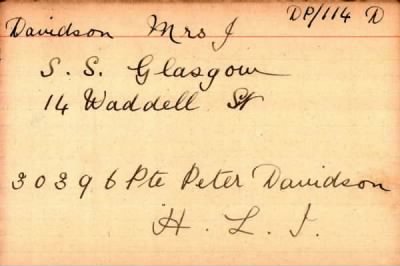 DP/114 D
Davidson Mrs J
S. S. Glasgow
14 Waddell St
30396 Pte Peter Davidson
H. L. I.